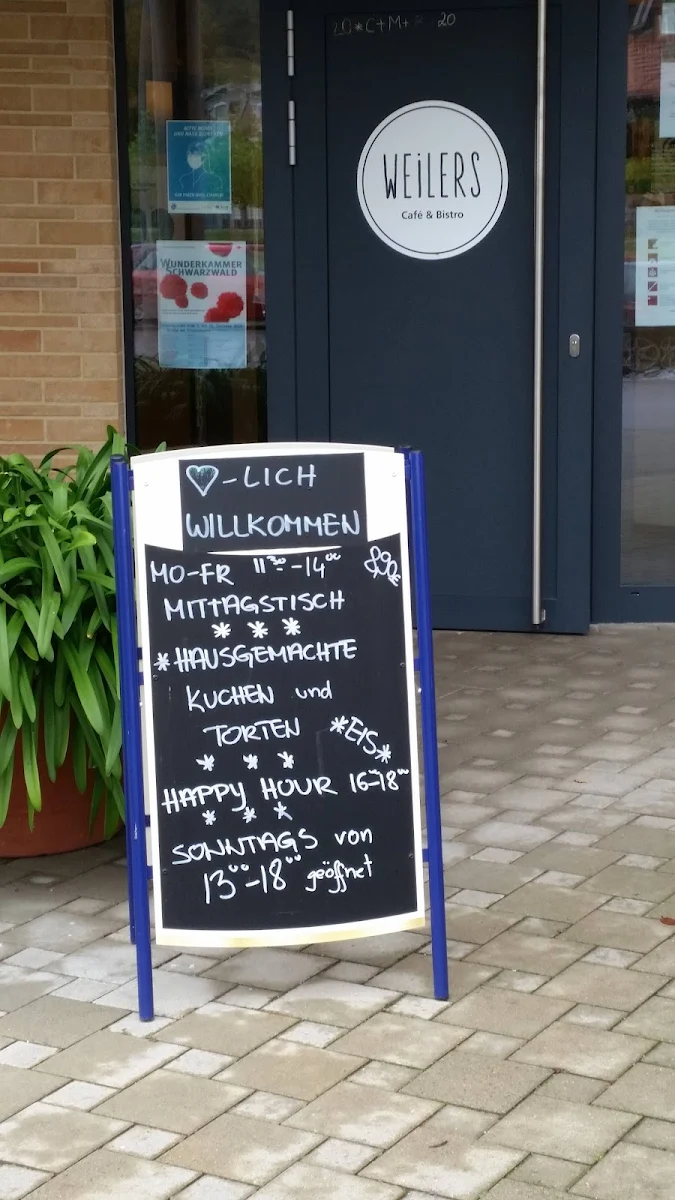 20*C+M+B 20
WEiLERS
Café & Bistro
WUNDERKAMMER
SCHWARZWALD
♡-LICH
WILLKOMMEN
MO-FR 11³⁰-14⁰⁰ 8,90€
MITTAGSTISCH
* * *
*HAUSGEMACHTE
KUCHEN und
TORTEN *EIS*
* * *
HAPPY HOUR 16-18⁰⁰
* * *
SONNTAGS von
13⁰⁰-18⁰⁰ geöffnet